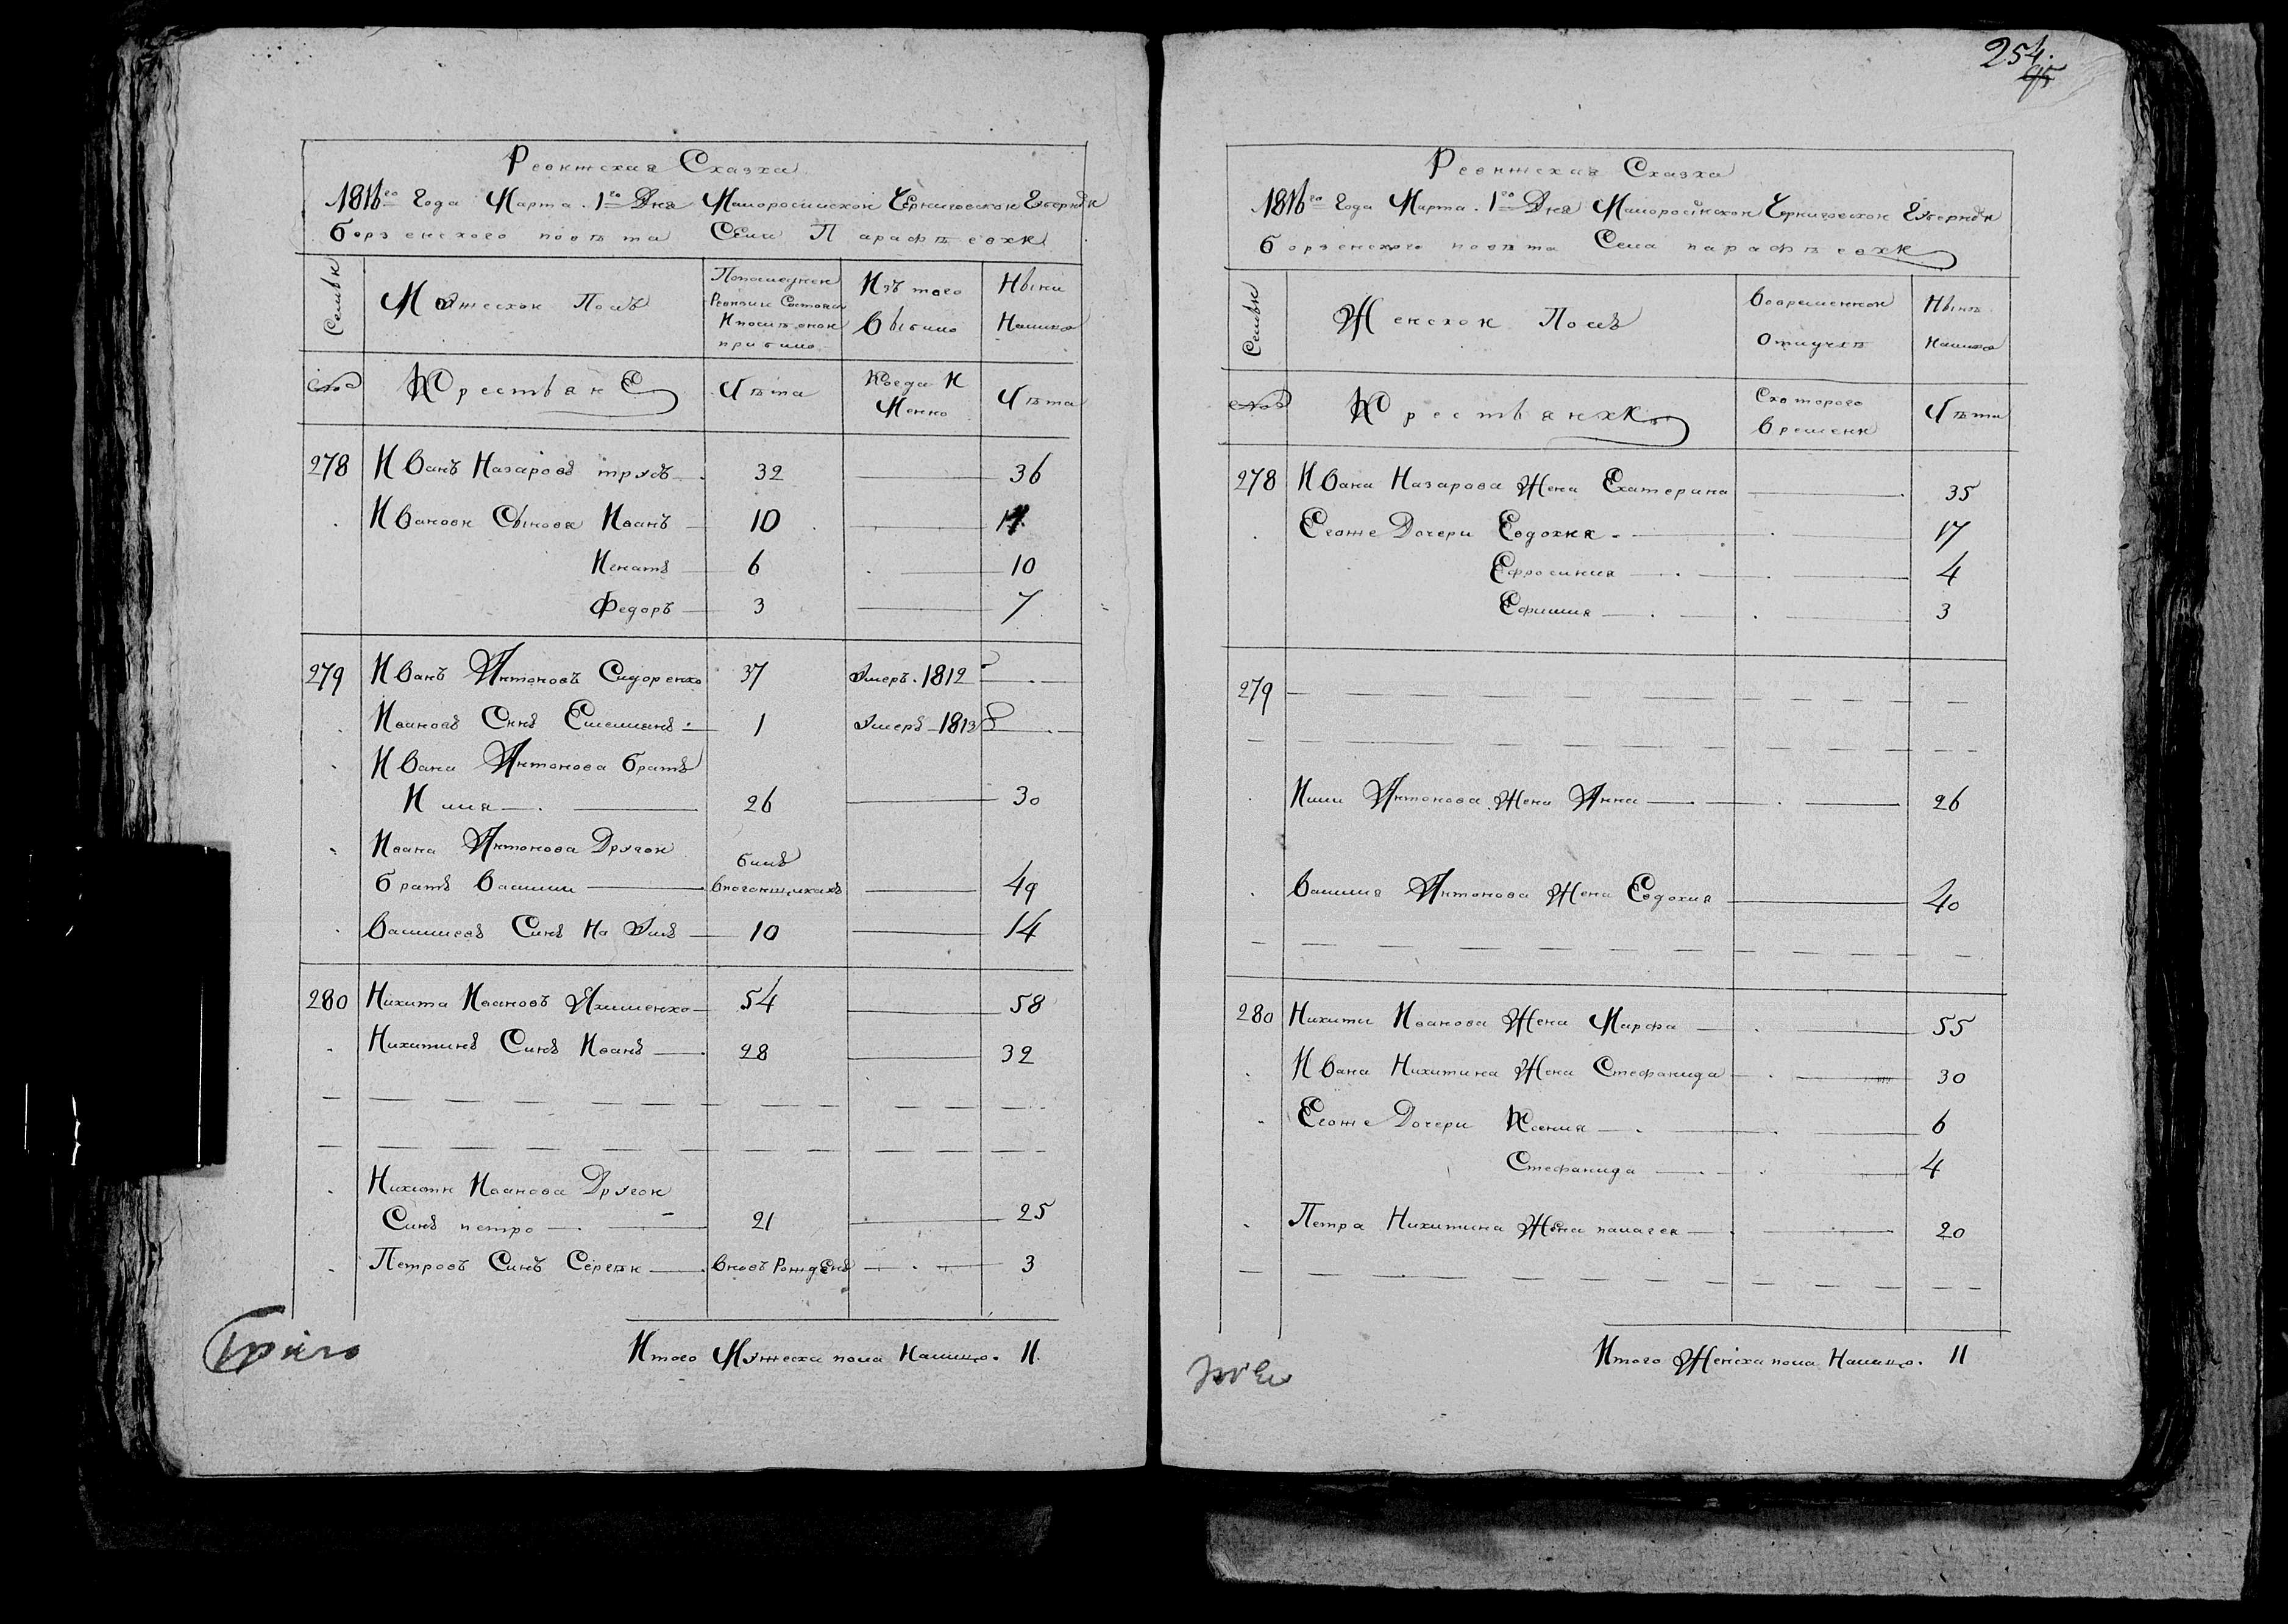 Ревижская Сказка
1816го Года Марта 1го Дня Малоросийской Черниговской Губернии
борзенского повѣта Села Парафѣевки
Семьи
Мужеской Полъ
По последней Ревизии Состояло И после оной прибыло
Изъ того выбыло
Ныни Налицо
№
Крестьяне
Лѣта
Когда И Менно
Лѣта
278 Иванъ Назаровъ трусъ 32 36
Ивановы Сыновя Иванъ 10
Игнатъ 6 10
Федоръ 3 7
279 Иванъ Антоновъ Сидоренко 37 Умеръ 1812
Ивановъ Синъ Емельянъ 1 Умеръ 1813
Ивана Антонова братъ
Илия 26 30
Ивана Антонова Другой
братъ Василий билъ 49
Васильевъ Синъ На Умъ 10 14
280 Никита Ивановъ Якименко 54 58
Никитинъ Синъ Иванъ 28 32
Никити Иванова Другой
Синъ петро 21 25
Петровъ Синъ Сергѣй вновъ Рожденъ 3
Итого Мужеска пола Налицо. 11.
254.
Ревижская Сказка
1816го Года Марта 1го Дня Малоросійской Черниговской Губернии
борзенского повѣта Села парафѣевки
Семьи
Женской Полъ
Вовременной Отлучкѣ
Нынѣ Налицо
№
Крестьянки
Скоторого Времени
Лѣта
278 Ивана Назарова Жена Екатерина 35
Егоже Дочери Евдокия 17
Ефросиния 4
Ефимия 3
279
Илии Антонова Жена Анна 26
Василия Антонова Жена Евдокия 40
280 Никиты Иванова Жена Марфа 55
Ивана Никитина Жена Стефанида 30
Егоже Дочери Ксения 6
Стефанида 4
Петра Никитина Жена палагея 20
Итого Женска пола Налицо. 11